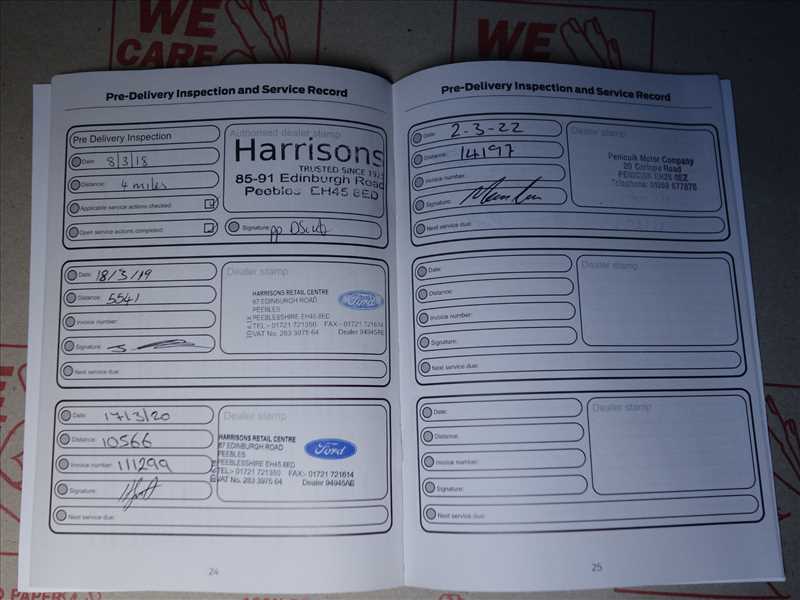 WE
CARE
WE
Pre-Delivery Inspection and Service Record
Pre Delivery Inspection
Date: 8/3/18
Distance: 4 miles
Applicable service actions checked:
Open service actions completed:
Authorised dealer stamp
Harrisons
TRUSTED SINCE
85-91 Edinburgh Road
Peebles EH45 8ED
Signature: pp
Date: 18/3/19
Distance: 5541
Invoice number:
Signature:
Next service due:
Dealer stamp
HARRISONS RETAIL CENTRE
87 EDINBURGH ROAD
PEEBLES
PEEBLESSHIRE EH45 8ED
TEL:- 01721 721350 FAX:- 01721 721614
VAT No. 283 3975 64 Dealer 94945AB
Ford
Date: 17/3/20
Distance: 10566
Invoice number: 111299
Signature:
Next service due:
Dealer stamp
HARRISONS RETAIL CENTRE
87 EDINBURGH ROAD
PEEBLES
PEEBLESSHIRE EH45 8ED
TEL:- 01721 721350 FAX:- 01721 721614
VAT No. 283 3975 64 Dealer 94945AB
Ford
24
Pre-Delivery Inspection and Service Record
Date: 2-3-22
Distance: 14197
Invoice number:
Signature:
Next service due:
Dealer stamp
Penicuik Motor Company
Road
PENICUIK EH26
Telephone: 01968 677878
Date:
Distance:
Invoice number:
Signature:
Next service due:
Dealer stamp
Date:
Distance:
Invoice number:
Signature:
Next service due:
Dealer stamp
25
WE
PAPER